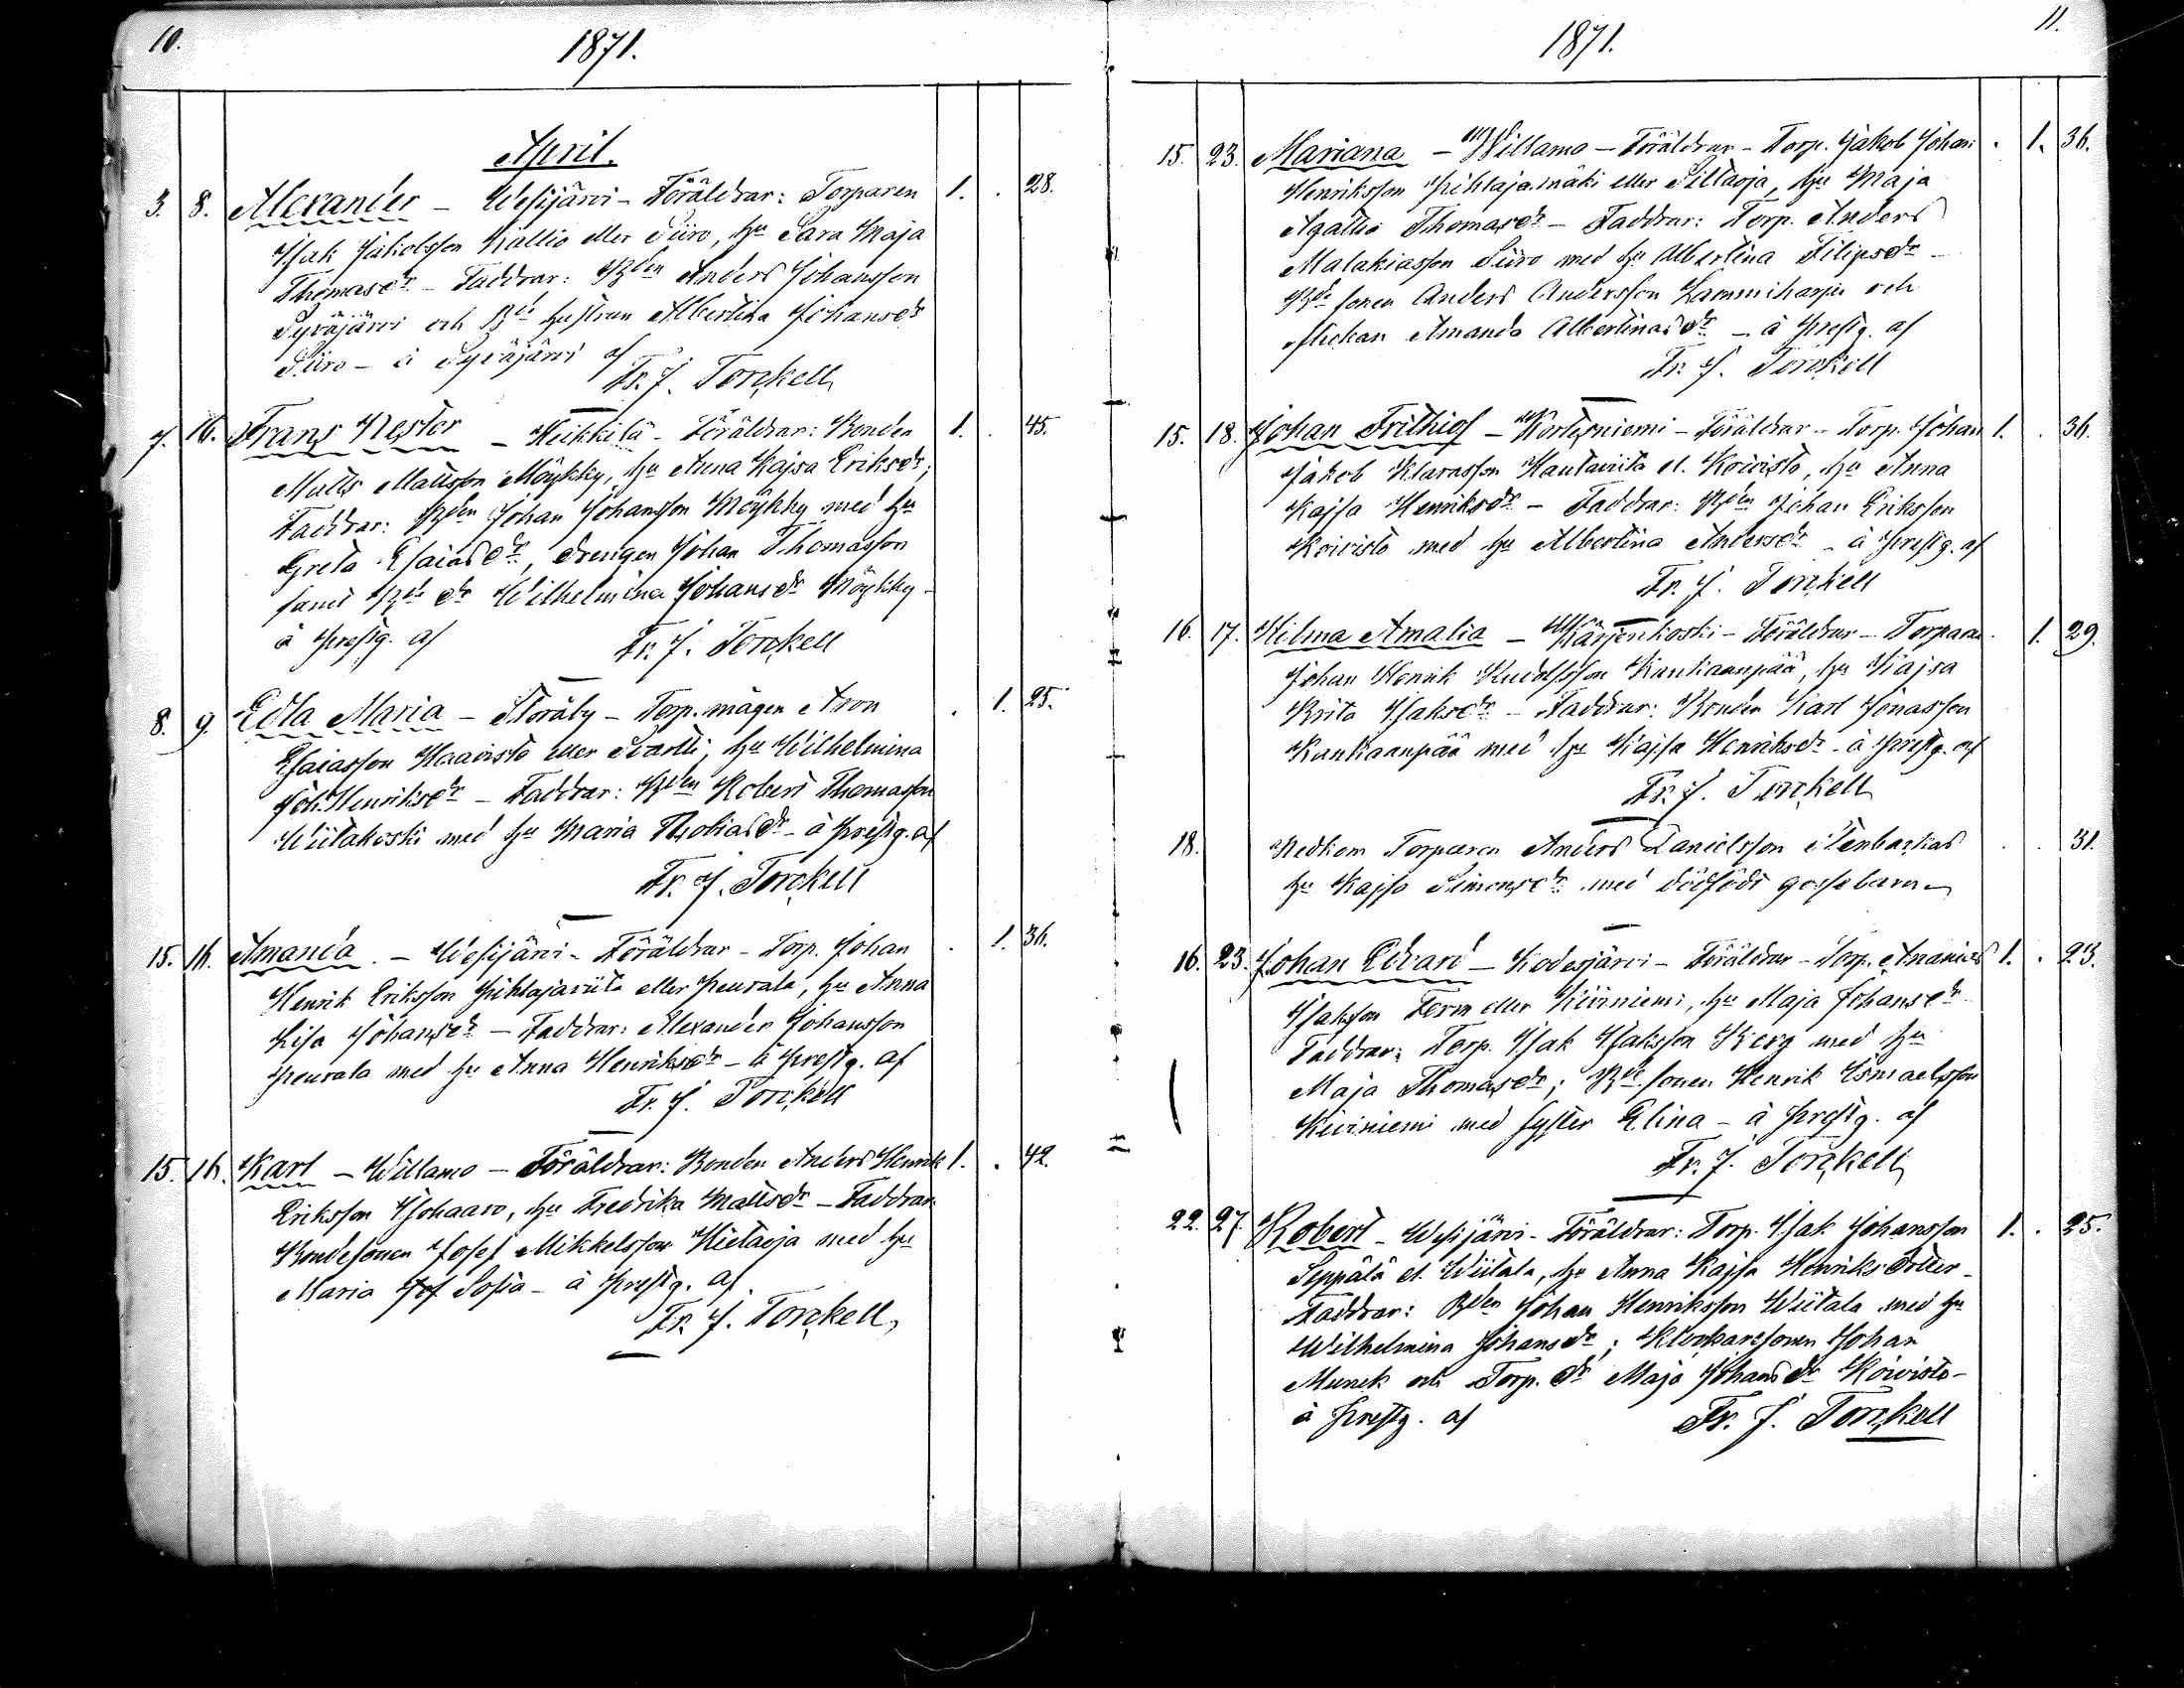 10.
1871.
April.
3. 8. Alexander - Wesijärvi - Föräldrar: Torparen 1. . 28.
Isak Jakobsson Kallio eller Siiro, hu Sara Maja
Thomasdr - Faddrar: Bden Anders Johansson
Syväjärvi och Bde hustrun Albertina Johansdr
Siiro - à Syväjärvi af
Fr. J. Torckell
7. 16. Frans Nestor - Heikkilä - Föräldrar: Bonden 1. . 45.
Matts Mattsson Möykky, hu Anna Kajsa Eriksdr;
Faddrar: Bden Johan Johansson Möykky med hu
Greta Esaiasdr, drengen Johan Thomasson
samt Bde dr Wilhelmina Johansdr Möykky -
à prestg. af Fr. J. Torckell
8. 9. Edla Maria - Storåby - Torp. mågen Aron . 1. 25.
Esaiasson Haavisto eller Svartti, hu Wilhelmina
Joh. Henriksdr - Faddrar: Bden Robert Thomasson
Wiitakoski med hu Maria Thobiasdr - à prestg. af
Fr. J. Torckell
15. 16. Amanda . - Wesijärvi - Föräldrar - Torp. Johan . 1. 36.
Henrik Eriksson Pihlajaviita eller Peurala, hu Anna
Lisa Johansdr - Faddrar: Alexander Johansson
Peurala med hu Anna Henriksdr - à prestg. af
Fr. J. Torckell
15. 16. Karl - Willamo - Föräldrar: Bonden Anders Henrik 1. . 42.
Eriksson Isohaaro, hu Fredrika Mattsdr - Faddrar:
Bondesonen Josef Mikkelsson Hietaoja med hu
Maria Sofia - à prestg. af
Fr. J. Torckell
11.
1871.
15. 23. Mariana - Willamo - Föräldrar - Torp. Jakob Johan . 1. 36.
Henriksson Pihlajamäki eller Siltaoja, hu Maja
Agatha Thomasdr - Faddrar: Torp. Anders
Malakiasson Siiro med hu Albertina Filipsdr -
Bde sonen Anders Andersson Lammiharju och
flickan Amanda Albertinasdr - à prestg. af
Fr. J. Torckell
15. 18. Johan Frithiof - Kortesniemi - Föräldrar - Torp. Johan 1. . 36.
Jakob Klarasson Hautaviita el. Koivisto, hu Anna
Kajsa Henriksdr - Faddrar: Bden Johan Eriksson
Koivisto med hu Albertina Andersdr - à prestg. af
Fr. J. Torckell
16. 17. Hilma Amalia - Kärjenkoski - Föräldrar - Torparen . 1. 29.
Johan Henrik Rudolfsson Kankaanpää, hu Kajsa
Brita Isaksdr - Faddrar: Bonden Karl Jonasson
Kankaanpää med hu Kajsa Henriksdr - à prestg. af
Fr. J. Torckell
18. Nedkom Torparen Anders Danielsson Stenbackas . . 31.
hu Kajsa Simonsdr med dödfödt gossebarn
16. 23. Johan Edvard - Kodesjärvi - Föräldrar - Torp. Ananias 1. . 23.
Isaksson Ferm eller Kiviniemi, hu Maja Johansdr
Faddrar: Torp. Isak Isaksson Berg med hu
Maja Thomasdr; Bde sonen Henrik Ismaelsson
Kiviniemi med syster Elina - à prestg. af
Fr. J. Torckell
22. 27. Robert - Wesijärvi - Föräldrar: Torp. Isak Johansson 1. . 25.
Seppälä el. Wiitala, hu Anna Kajsa Henriksdotter -
Faddrar: Bden Johan Henriksson Wiitala med hu
Wilhelmina Johansdr; Klockarsonen Johan
Munck och Torp. dr Maja Johansdr Koivisto -
à prestg. af Fr. J. Torckell